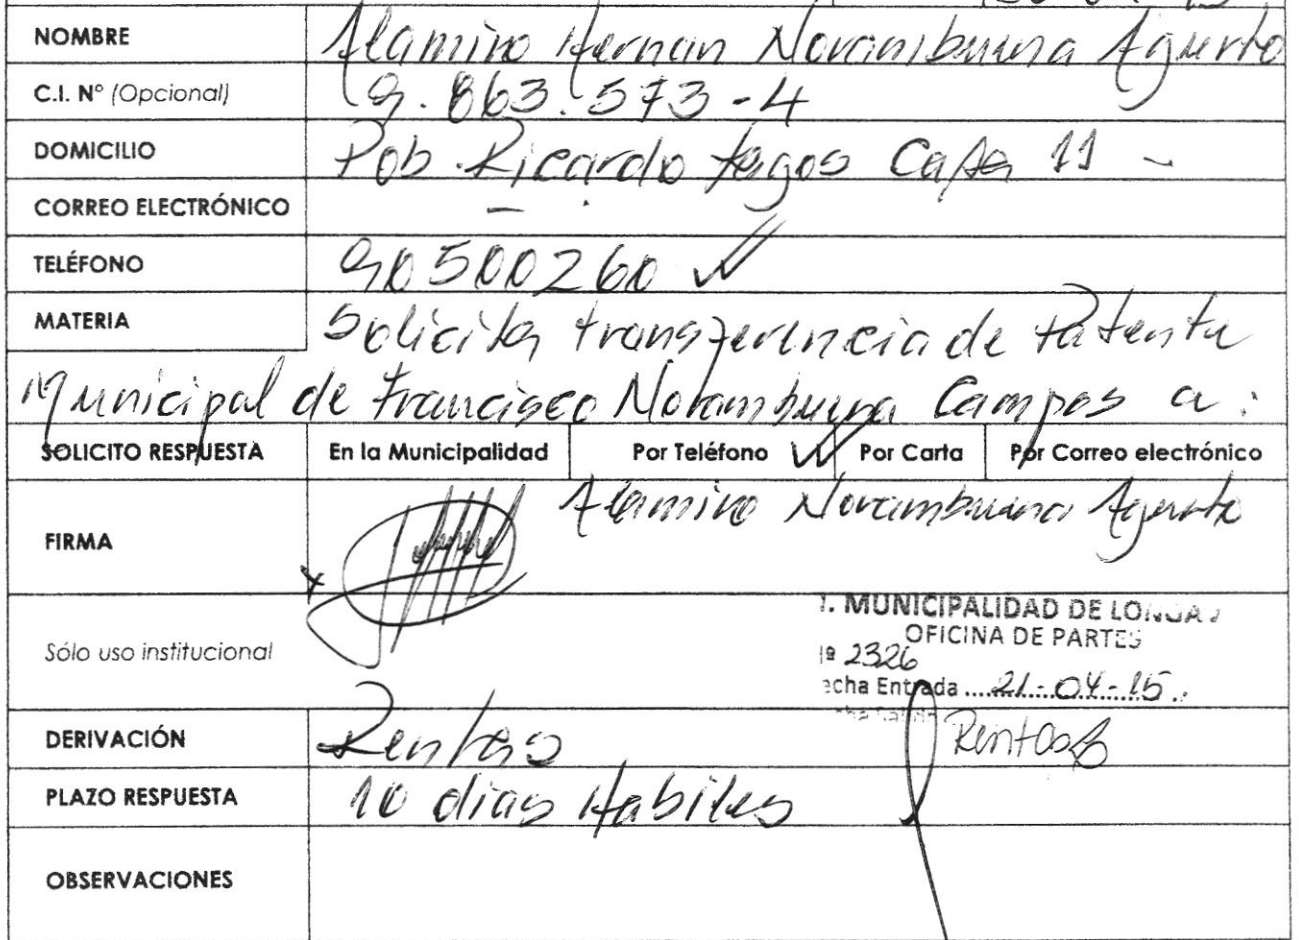 NOMBRE Alamiro Hernan Norambuena Agurto
C.I. Nº (Opcional) 9.863.573-4
DOMICILIO Pob. Ricardo Lagos Casa 11 -
CORREO ELECTRÓNICO - .
TELÉFONO 90500260
MATERIA Solicita transferencia de Patente
Municipal de Francisco Norambuena Campos a:
SOLICITO RESPUESTA En la Municipalidad Por Teléfono Por Carta Por Correo electrónico
Alamiro Norambuena Agurto
FIRMA
I. MUNICIPALIDAD DE LONGAVI
OFICINA DE PARTES
Sólo uso institucional Nº 2326
Fecha Entrada ..... 21-04-15 .
DERIVACIÓN Rentas Rentas
PLAZO RESPUESTA 10 dias Habiles
OBSERVACIONES